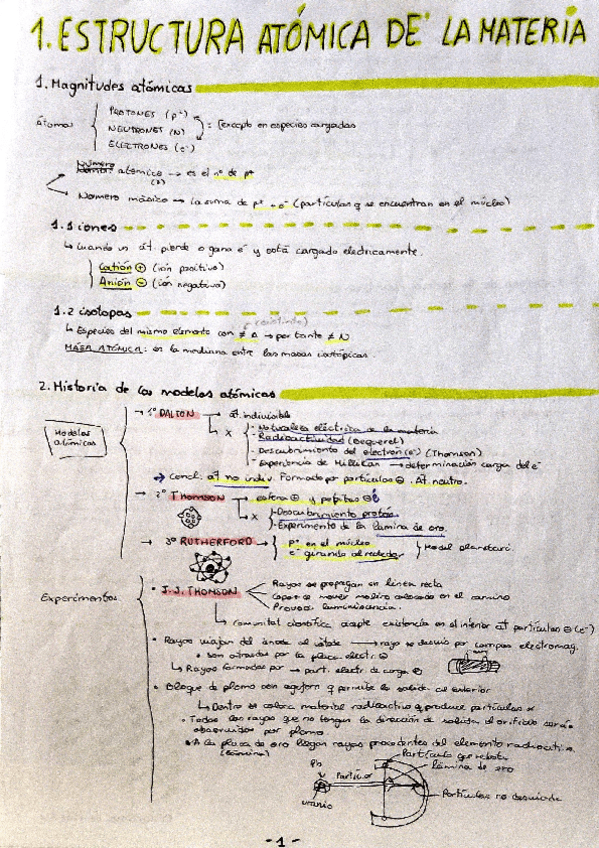 1. ESTRUCTURA ATÓMICA DE LA MATERIA
1. Magnitudes atómicas
átomos
PROTONES (p⁺)
NEUTRONES (N)
ELECTRONES (e⁻)
= [excepto en especies cargadas
Número atómico → es el nº de p⁺
(Z)
Número másico → la suma de p⁺ + (partículas q se encuentran en el núcleo)
1.1 iones
↳ Cuando un át. pierde o gana e⁻ y está cargado electricamente.
Catión ⊕ (ión positivo)
Anión ⊖ (ión negativo)
1.2 isotopos
(distinto)
↳ Especies del mismo elemento con ≠ A → por tanto ≠ N
MASA ATÓMICA: es la mediana entre las masas isotópicas
2. Historia de los modelos atómicos
Modelos atómicos
→ 1º DALTON → át. indivisible
x - Naturaleza eléctrica de la materia
- Radioactividad (Bequerel)
- Descubrimiento del electrón (e⁻) (Thomson)
- Experiencia de Millikan → determinación carga del e⁻
→ Concl: át no indiv. Formado por partículas ⊖. Át neutro.
→ 2º THOMSON → esfera ⊕ y pepitas ⊖
x - Descubrimiento protón
- Experimento de la lámina de oro.
→ 3º RUTHERFORD → p⁺ en el núcleo
e⁻ girando alrededor
Model planetari.
Experimentos
• J.J. THOMSON
Rayos se propagan en linea recta
Capaz de mover molino colocado en el camino
Provoca luminiscencia.
↳ comunitat científica acepte existencia en el interior át partículas ⊖ (e⁻)
• Rayos viajan del ánode al cátode → rayo se desvía por campos electromag.
• son atraídos por la placa electr. ⊕
↳ Rayos formados por → part. electr de carga ⊖
• Bloque de plomo con agujero q permite la salida al exterior
↳ Dentro se coloca material radioactivo q produce partículas α
• Todos los rayos que no tengan la dirección de salida al orificio serán
absorbidos por plomo
• A la placa de oro llegan rayos procedentes del elemento radioactivo.
(lámina)
Partícula que rebota
Pb
Partícula
lámina de oro
uranio
Partículas no desviada
- 1 -